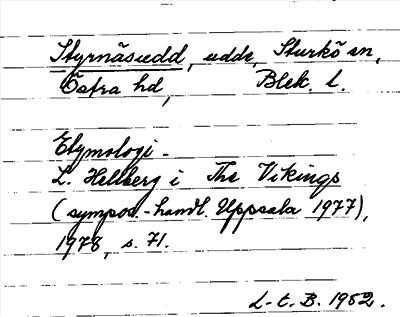 Styrnäsudd, udde, Sturkö sn,
Östra hd, Blek. l.
Etymologi.
L. Hellberg i The Vikings
(sympos.-handl. Uppsala 1977),
1978, s. 71.
L-E. B. 1982.